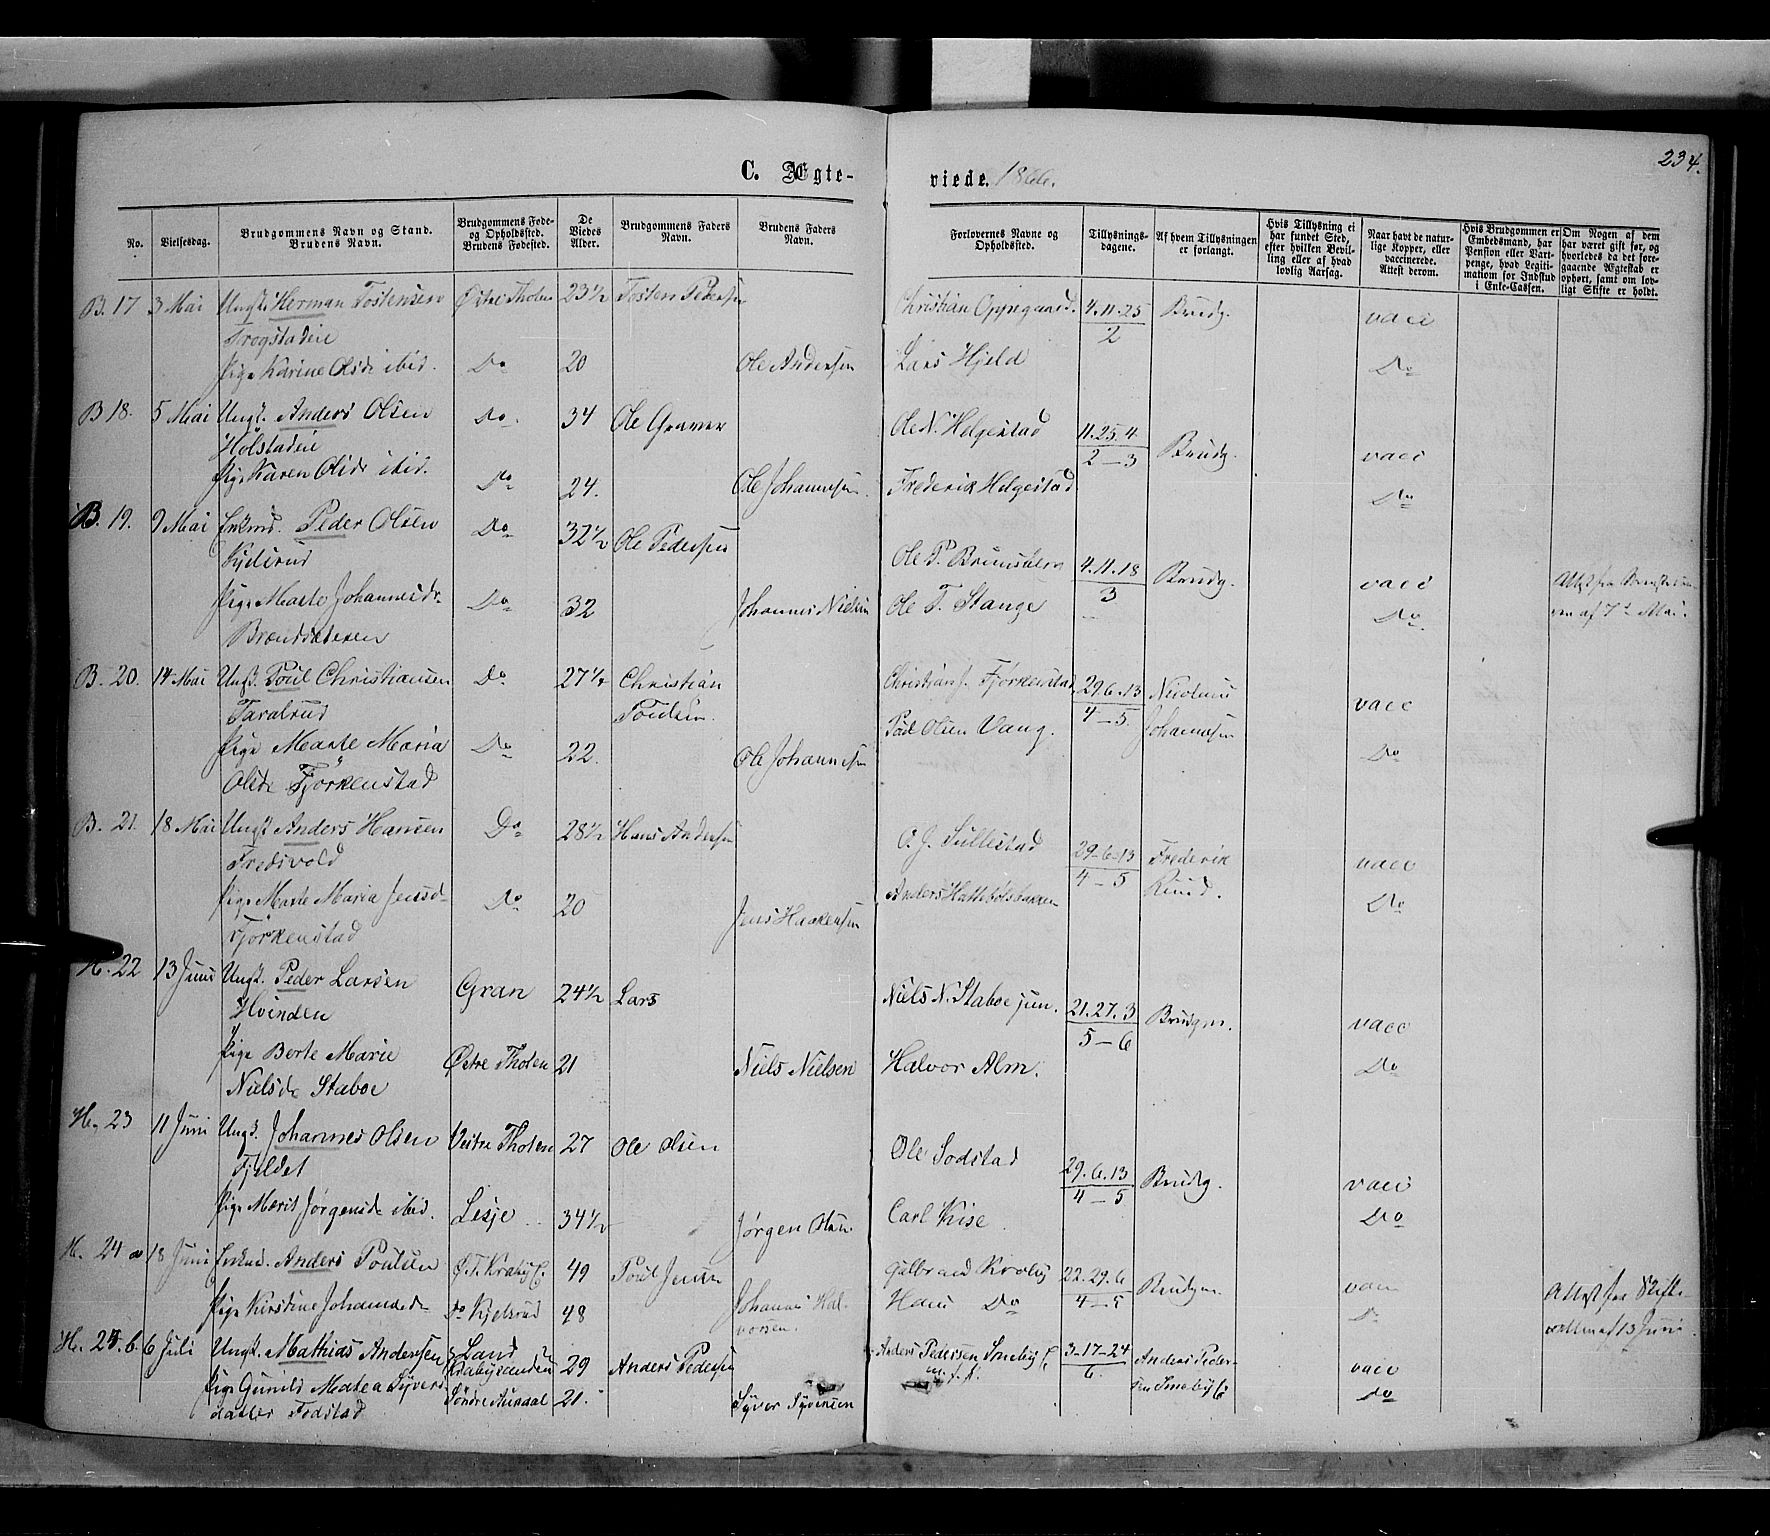 234.
C. Ægte-
viede. 1866.
No.
Vielsesdag.
Brudgommens Navn og Stand.
Brudens Navn.
Brudgommens Føde-
og Opholdssted.
Brudens Fødested.
De
Viedes
Alder.
Brudgommens Faders
Navn.
Brudens Faders
Navn.
Forlovernes Navne og
Opholdssted.
Tillysnings-
dagene.
Af hvem Tillysningen
er forlangt.
Hvis Tillysning ei
har fundet Sted,
efter hvilken Bevil-
ling eller af hvad
lovlig Aarsag.
Naar havt de natur-
lige Kopper, eller
vaccinerede.
Attest derom.
Hvis Brudgommen er
Embedsmand, har
Pension eller Vart-
penge, hvad Legiti-
mation for Indskud
i Enke-Cassen.
Om Nogen af dem
har været gift før, og
hvorledes da det fore-
gaaende Ægteskab er
ophørt, samt om lov-
ligt Skifte er holdt.
B. 17 3 Mai Ungk. Herman Tostensen Østre Thoten 23½ Tosten Pedersen Christian Oppegaard. 4.11.25 Brudg. vacc
Trogstadeie 2
Pige Karine Olsdr ibid. Do 20 Ole Andersen Lars Hjeld Do
B 18. 5 Mai Ungk. Anders Olsen Do. 34 Ole Gramer Ole N. Helgestad 11.25.4 Brudg. vacc
Holstadeie 2-3
Pige Karen Olsdr ibid. Do 24. Ole Johannesen. Frederik Helgestad Do
B. 19. 9 Mai Enkmd. Peder Olsen Do 32½ Ole Pedersen Ole P. Brunsberg 4.11.18 Brudg. vacc
Kjelsrud 3
Pige Marte Johannesdr. Do 32 Johannes Nielsen Ole T. Stange Do
Brændsæteren
af 7de Mai.
B. 20. 14 Mai Ungk. Poul Christiansen Do. 27½ Christian Christian J. Fjørkenstad 29.6.13 Johannesen vacc
Taralrud Poulsen. 4-5.
Pige Marte Maria Do 22. Ole Johannesen Poul Olsen Vang. Do
Olsdr Fjørkenstad
B. 21. 18 Mai Ungk Anders Hansen Do 28½ Hans Andersen O. J. Sullestad 29-6-13 Frederik vacc
Fredsvold 4-5 Ruud.
Pige Marte Maria Jensd- Do 20 Jens Haakensen Anders Hattebølsbakken Do
Fjørkenstad
H. 22 13 Juni Ungk. Peder Larsen Gran 24½ Lars Niels N. Staboe jun. 21.27.3 Brudgm. vacc
Hvinden 5-6
Pige Berte Marie Østre Thoten 21 Niels Nielsen Halvor Alm. Do
Nielsdr Staboe
H. 23 11 Juni Ungk. Johannes Olsen Vestre Thoten 27 Ole Olsen Ole Sodstad 29.6.13 Brudg. vacc
Fjeldet 4-5
Pige Marit Jørgensdr ibid. Lesje 34½ Jørgen Olsen Carl Kise Do
H. 24 a 18 Juni Enkmd. Anders Poulsen Ø.T. Kraby E. 49 Poul Jensen Gulbrand Kraby 22.29.6 Brudgm vacc
4-5
Pige Kirstine Johannesdr Do Kjelsrud 48 Johannes Hal- Hans Do Do
vorsen.
Attest fra Skifte-
retten af 13 Juni.
H. 24.b. 6 Juli Ungk. Mathias Andersen Land 29 Anders Pedersen Anders Pedersen Smeby E. 3-17-24 Anders Peder- vacc
6. sen Smeby E.
Pige Gunild Matea Syvers Søndre Aurdal 21. Syver Syversen Do
datter Fodstad